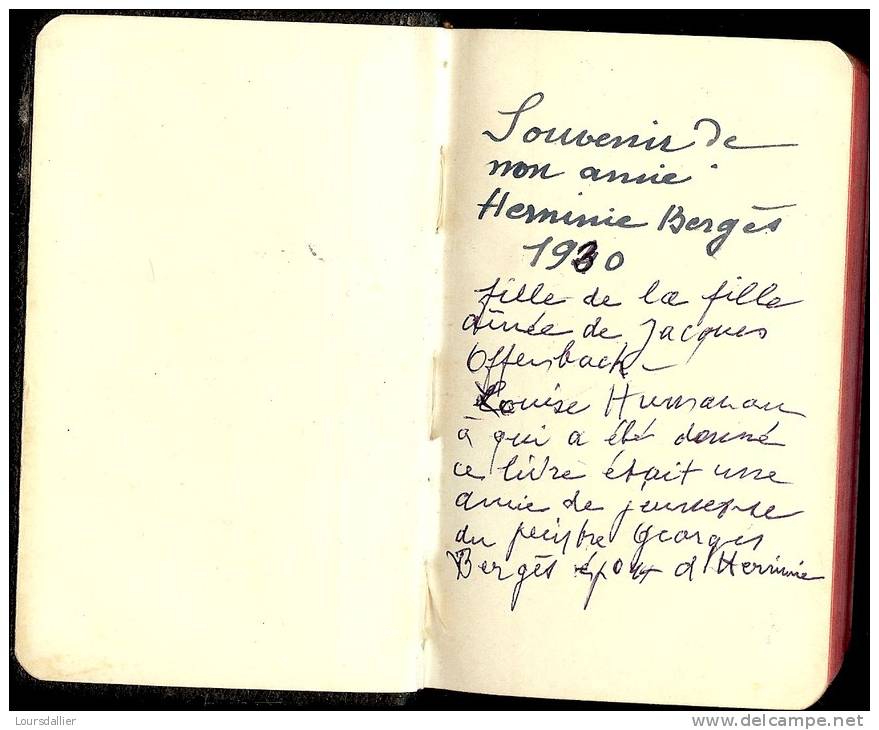 Souvenir de
mon amie
Herminie Bergès
1930
fille de la fille
aînée de Jacques
Offenback -
Louise Humanan
à qui a été donné
ce livre était une
amie de jeunesse
du peintre Georges
Bergès époux d'Herminie
Loursdallier
www.delcampe.net